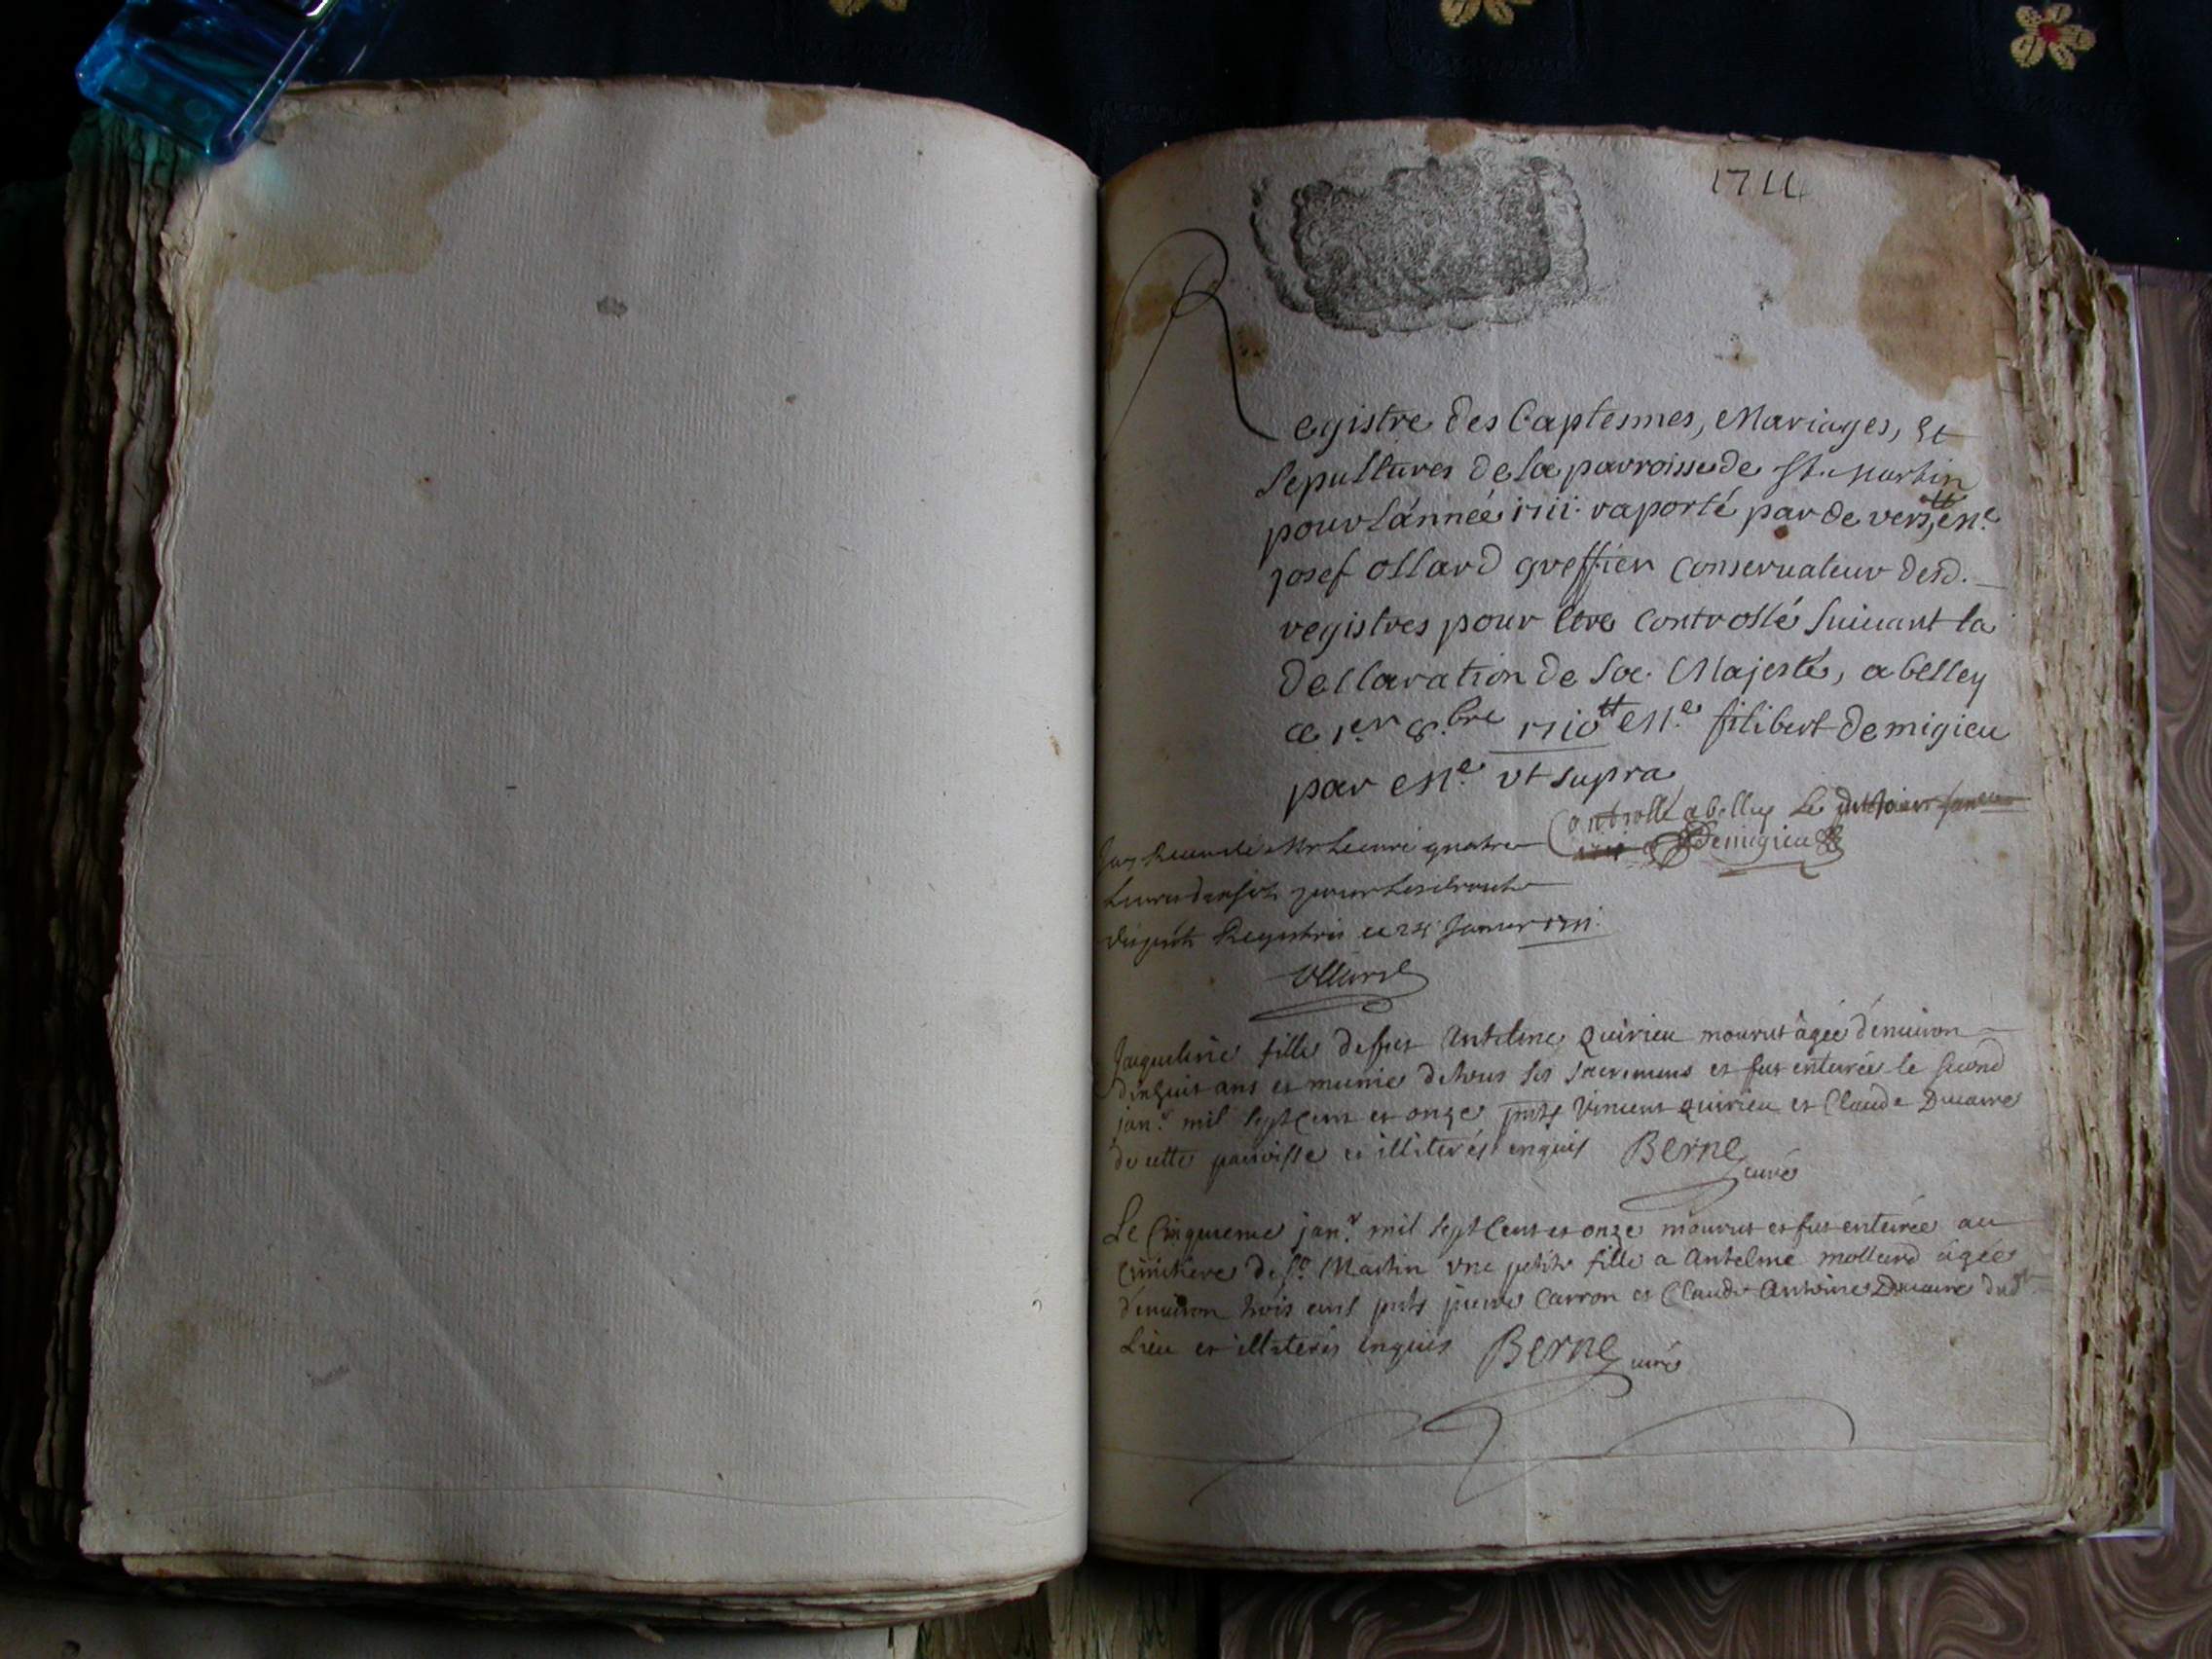 1711
Registre des baptesmes, Mariages, Et
Sepultures de la parroisse de St. Martin
pour l'année 1711. raporté par de vers Me.
josef ollard greffier conservateur desd.
registres pour être controllé suivant la
declaration de sa Majesté, a belley
ce 1er 8.bre 1710 Me. filibert demigieu
par Me. vt supra
Controllé a belley Le
Demigieu
Jay Receu de Mr le curé quatre
Livres dix sols pour les droits
du pnt Registre ce 24 Janvier 1711.
Ollard
Jaqueline fille de feu Antelme Quirieu mourut âgée d'enuiron
dixhuit ans et munie de tous ses sacremens et fut enterrée le second
jan.r mil sept cent et onze pnts Vincent Quirieu et Claude Ducarre
de cette parroisse et illiterés enquis Berne
curé
Le Cinquieme jan.r mil sept cent et onze mourut et fut enterrée au
cimitiere de St Martin vne petite fille a Antelme mollard âgée
d'enuiron trois ans pnts pierre Carron et Claude Antoine Ducarre dud
Lieu et illiterés enquis Berne curé